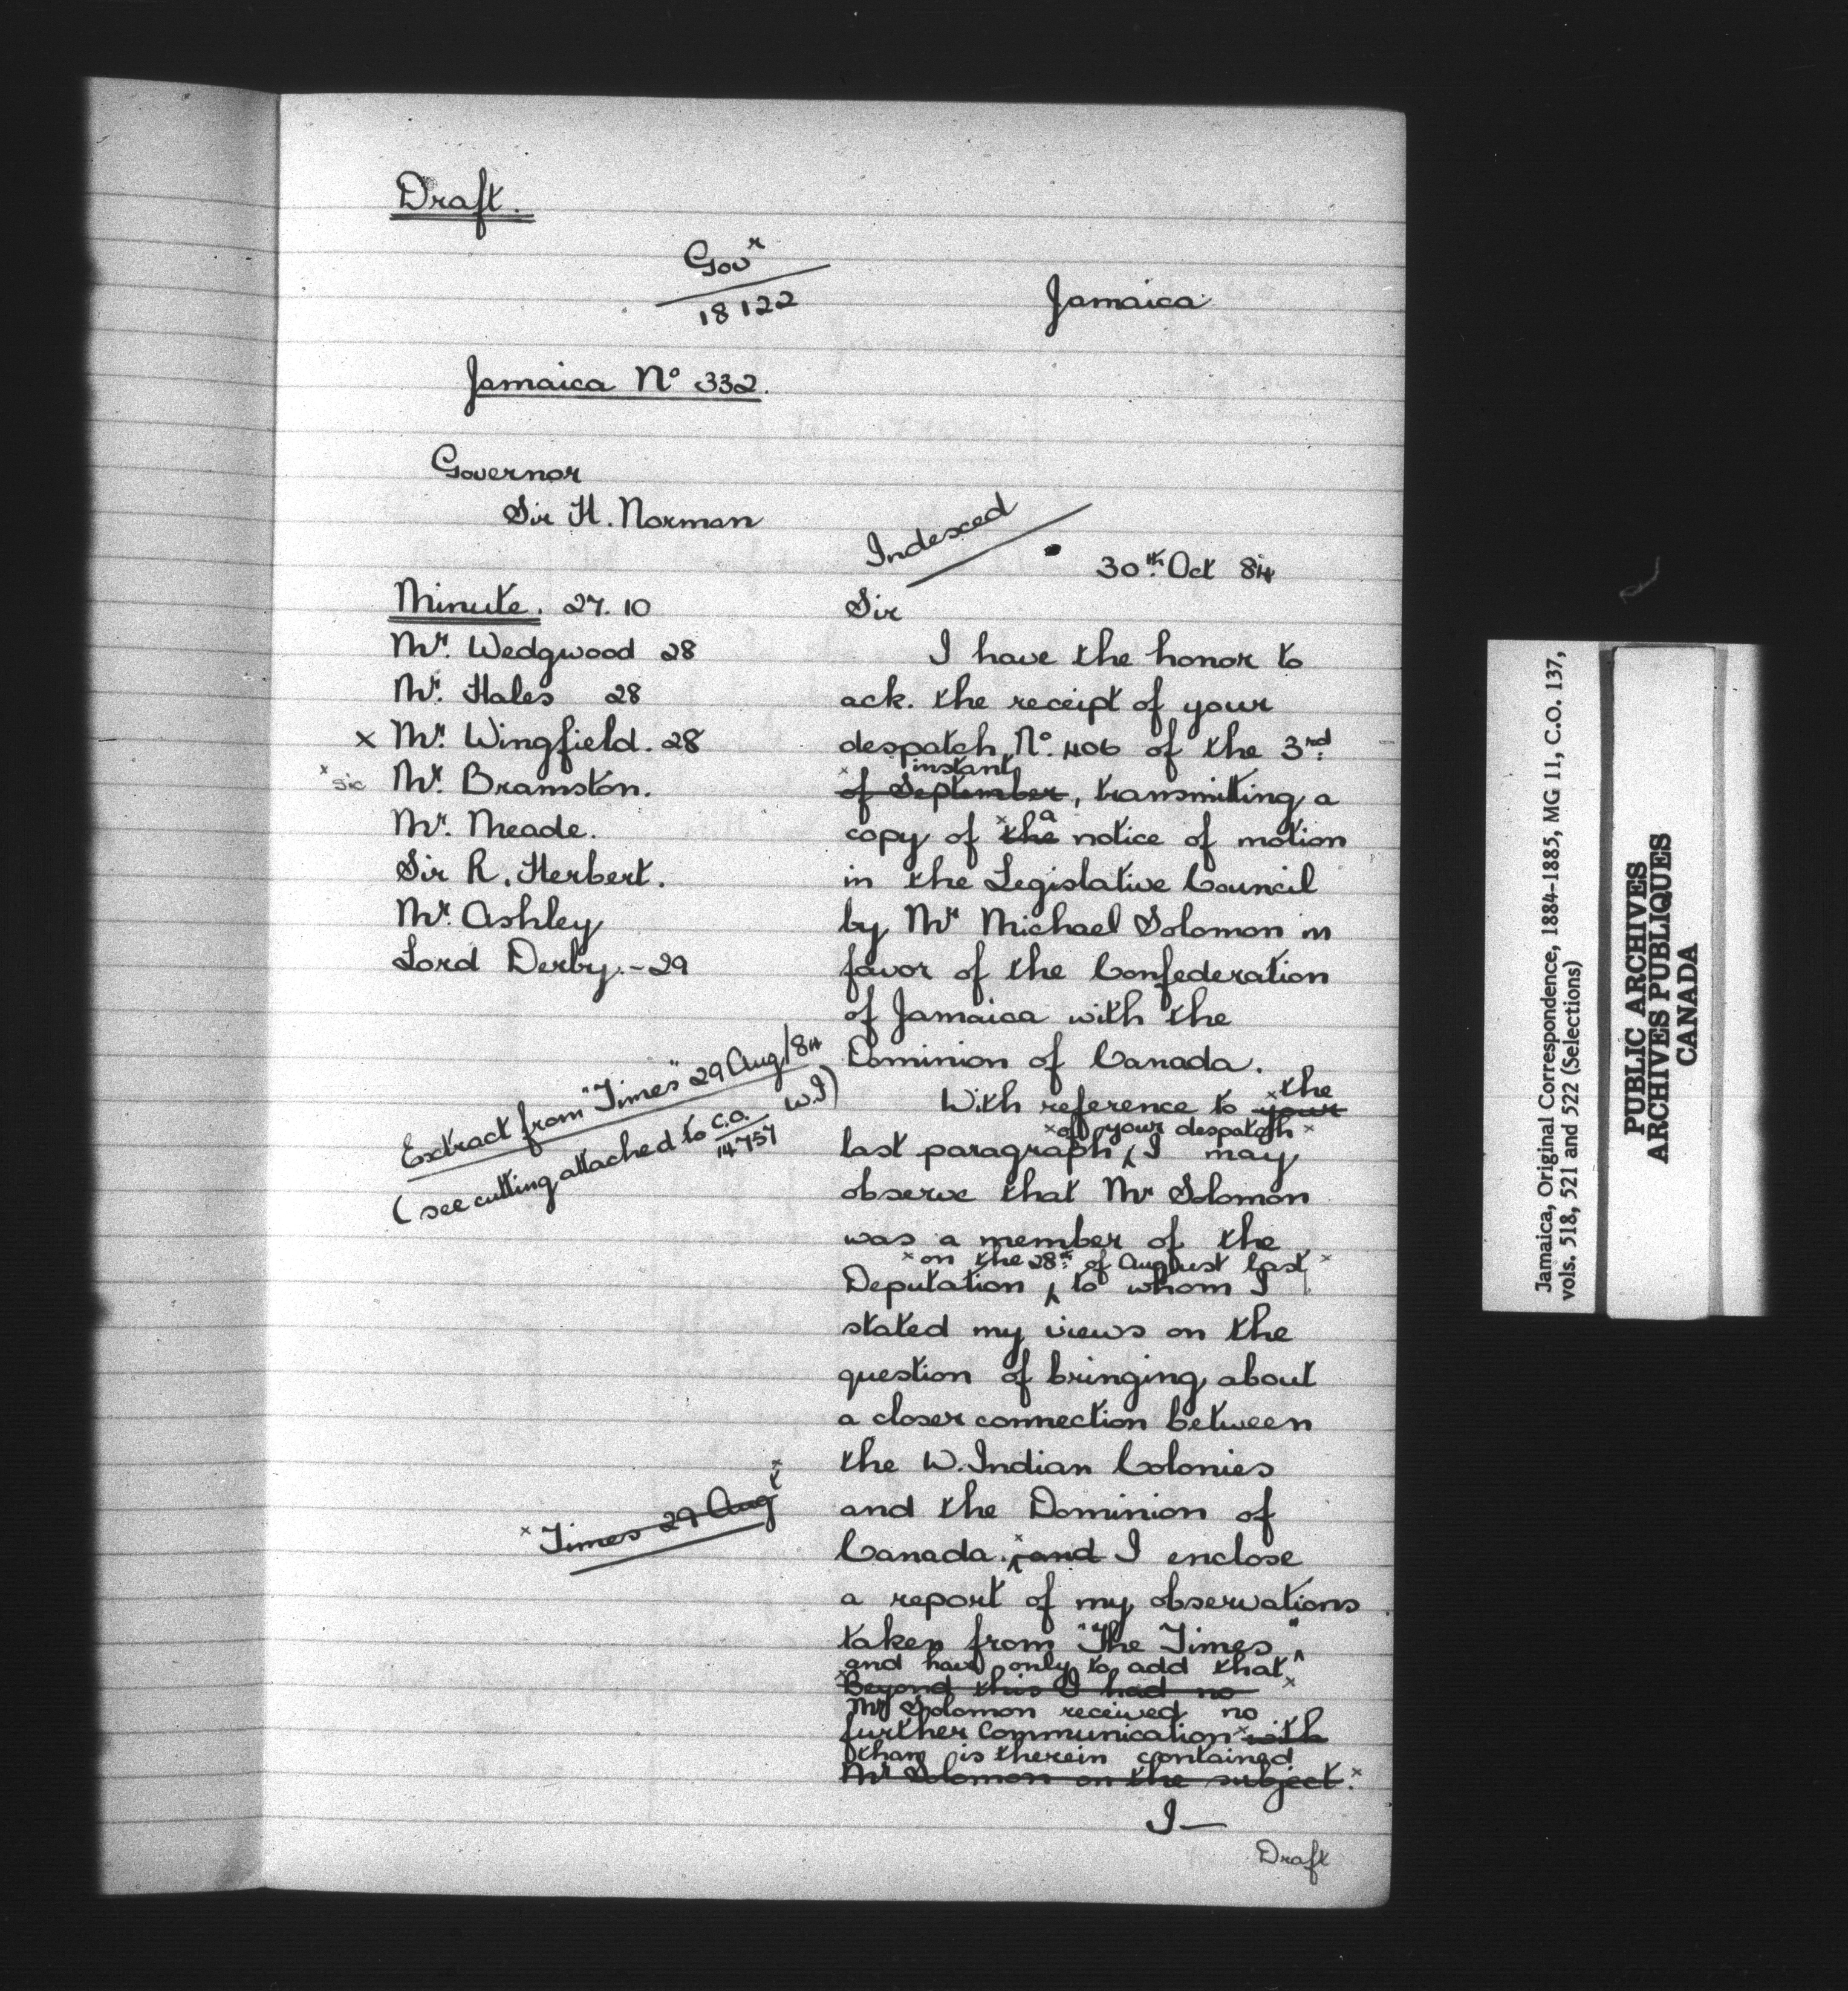 Draft.
Gov^r
18122
Jamaica
Jamaica N° 332.
Governor
Sir H. Norman
Indexed
30th. Oct 84
Minute. 27.10
Mr. Wedgwood 28
Mr. Hales 28
x Mr. Wingfield. 28
x sic Mr. Bramston.
Mr. Meade.
Sir R. Herbert.
Mr. Ashley
Lord Derby.-29
Extract from "Times" 29 Aug/84
(see cutting attached to C.O./14757 W.I)
x Times 29 Aug^t x
Sir
I have the honor to
ack. the receipt of your
despatch N°. 406 of the 3rd.
instant
x of September, transmitting a
a
copy of x the notice of motion
in the Legislative Council
by Mr Michael Solomon in
favor of the Confederation
of Jamaica with the
Dominion of Canada.
the
With reference to x your
x of your despatch x
last paragraph, I may
observe that Mr Solomon
was a member of the
x on the 28th. of August last x
Deputation, to whom I
stated my views on the
question of bringing about
a closer connection between
the W. Indian Colonies
and the Dominion of
Canada. x and I enclose
a report of my observations
taken from "The Times"
and have only to add that
x Beyond this I had no x
Mr Solomon received no
further communication x with
than is therein contained
Mr Solomon on the subject. x
I—
Draft
Jamaica, Original Correspondence, 1884-1885, MG 11, C.O. 137,
vols. 518, 521 and 522 (Selections)
PUBLIC ARCHIVES
ARCHIVES PUBLIQUES
CANADA